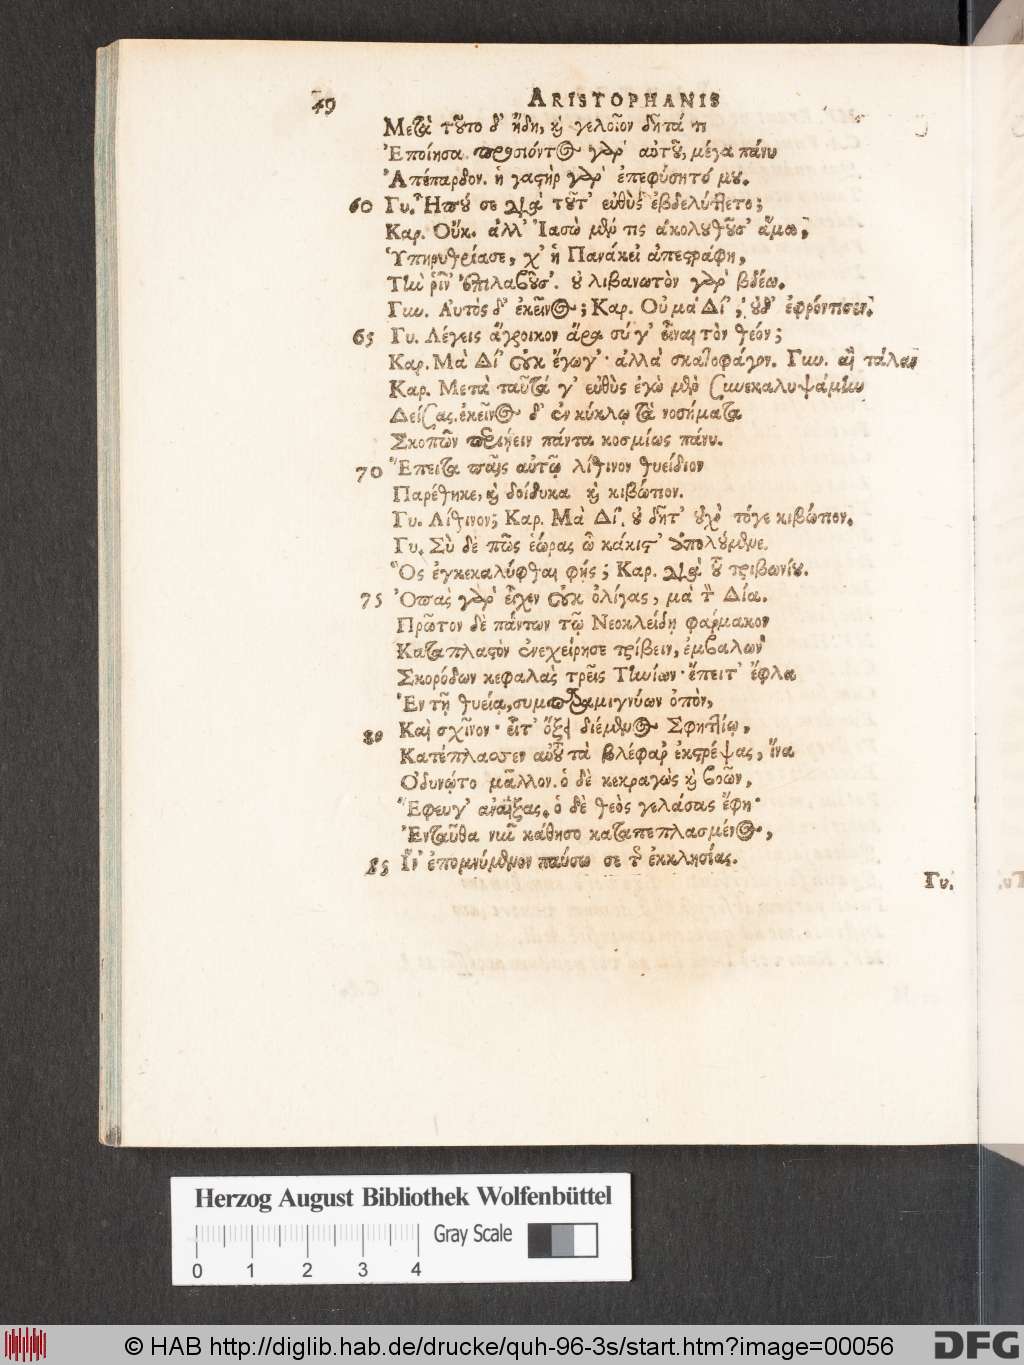 49 ARISTOPHANIS
Μετὰ τοῦτο δ' ἤδη, καὶ γελοῖον δῆτά τι
Ἐποίησα. προσιόντος γὰρ αὐτοῦ, μέγα πάνυ
Ἀπέπαρδον. ἡ γαστὴρ γὰρ ἐπεφύσητό μου.
60 Γυ. Ἦ που σε διὰ τοῦτ' εὐθὺς ἐβδελύττετο;
Καρ. Οὔκ. ἀλλ' Ἰασὼ μέν τις ἀκολουθοῦσ' ἅμα,
Ὑπηρυθρίασε, χ' ἡ Πανάκει' ἀπεστράφη,
Τὴν ῥῖν' ἐπιλαβοῦσ'. οὐ λιβανωτὸν γὰρ βδέω.
Γυν. Αὐτὸς δ' ἐκεῖνος; Καρ. Οὐ μὰ Δί', οὐδ' ἐφρόντισεν.
65 Γυ. Λέγεις ἄγροικον ἄρα σύ γ' εἶναι τὸν θεόν;
Καρ. Μὰ Δί' οὐκ ἔγωγ'· ἀλλὰ σκατοφάγον. Γυν. αἲ τάλαν
Καρ. Μετὰ ταῦτά γ' εὐθὺς ἐγὼ μὲν συνεκαλυψάμην
Δείσας. ἐκεῖνος δ' ἐν κύκλῳ τὰ νοσήματα
Σκοπῶν περιήειν πάντα κοσμίως πάνυ.
70 Ἔπειτα παῖς αὐτῷ λίθινον θυείδιον
Παρέθηκε, καὶ δοίδυκα καὶ κιβώτιον.
Γυ. Λίθινον; Καρ. Μὰ Δί'. οὐ δῆτ' οὐχὶ τόγε κιβώτιον.
Γυ. Σὺ δὲ πῶς ἑώρας ὦ κάκιστ' ἀπολούμενε.
Ὃς ἐγκεκαλύφθαι φῄς; Καρ. διὰ τοῦ τριβωνίου.
75 Ὀπὰς γὰρ εἶχεν οὐκ ὀλίγας, μὰ τὸν Δία.
Πρῶτον δὲ πάντων τῷ Νεοκλείδῃ φάρμακον
Καταπλαστὸν ἐνεχείρησε τρίβειν, ἐμβαλὼν
Σκορόδων κεφαλὰς τρεῖς Τηνίων· ἔπειτ' ἔφλα
Ἐν τῇ θυείᾳ, συμπαραμιγνύων ὀπὸν,
80 Καὶ σχῖνον· εἶτ' ὄξει διέμενος Σφηττίῳ,
Κατέπλασσεν αὐτοῦ τὰ βλέφαρ' ἐκστρέψας, ἵνα
Ὀδυνῷτο μᾶλλον. ὁ δὲ κεκραγὼς καὶ βοῶν,
Ἔφευγ' ἀναΐξας. ὁ δὲ θεὸς γελάσας ἔφη·
Ἐνταῦθα νυνὶ κάθησο καταπεπλασμένος,
85 Ἵν' ἐπομνύμενον παύσω σε τῆς ἐκκλησίας.
Γυ.
Herzog August Bibliothek Wolfenbüttel
Gray Scale
0 1 2 3 4
© HAB http://diglib.hab.de/drucke/quh-96-3s/start.htm?image=00056
DFG